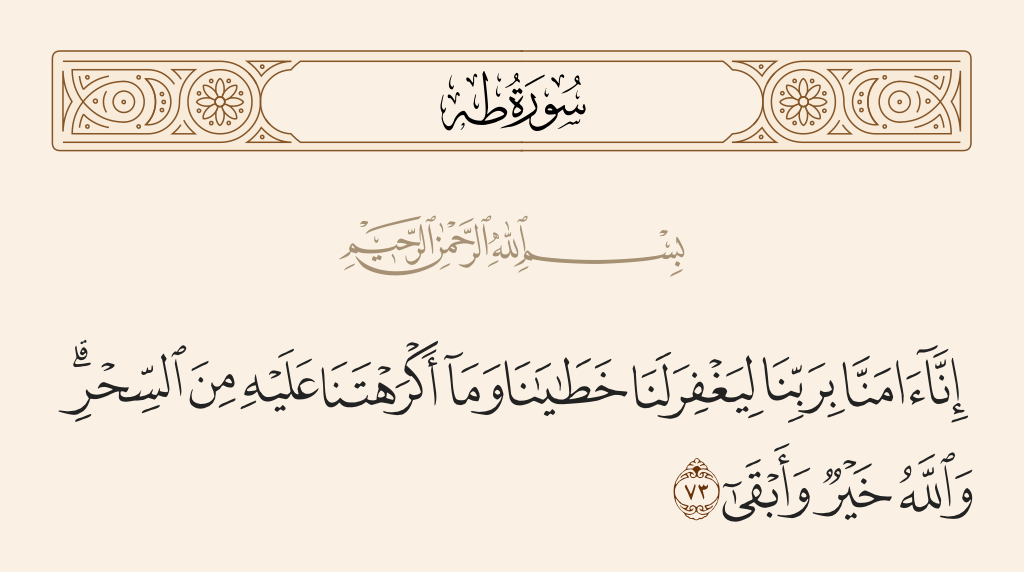 سُورَةُ طه
بِسْمِ ٱللَّهِ ٱلرَّحْمَٰنِ ٱلرَّحِيمِ
إِنَّآ ءَامَنَّا بِرَبِّنَا لِيَغْفِرَ لَنَا خَطَٰيَٰنَا وَمَآ أَكْرَهْتَنَا عَلَيْهِ مِنَ ٱلسِّحْرِ ۗ
وَٱللَّهُ خَيْرٌ وَأَبْقَىٰٓ ٧٣